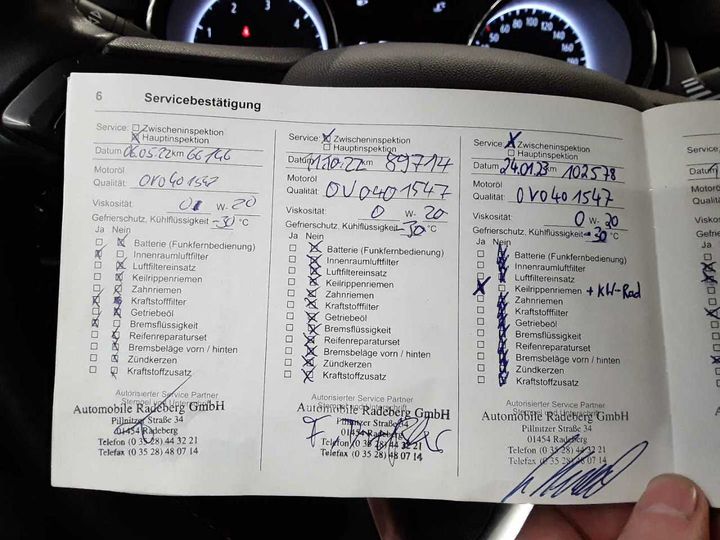 6 Servicebestätigung
Service: Zwischeninspektion
Hauptinspektion
Datum 06.05.22 km 66146
Motoröl
Qualität: OVO401547
Viskosität: 0 W- 20
Gefrierschutz, Kühlflüssigkeit -30 °C
Ja Nein
Batterie (Funkfernbedienung)
Innenraumluftfilter
Luftfiltereinsatz
Keilrippenriemen
Zahnriemen
Kraftstofffilter
Getriebeöl
Bremsflüssigkeit
Reifenreparaturset
Bremsbeläge vorn / hinten
Zündkerzen
Kraftstoffzusatz
Autorisierter Service Partner
Stempel und Unterschrift
Automobile Radeberg GmbH
Pillnitzer Straße 34
01454 Radeberg
Telefon (0 35 28) 44 32 21
Telefax (0 35 28) 48 07 14
Service: Zwischeninspektion
Hauptinspektion
Datum 11.10.22 km 89714
Motoröl
Qualität: OVO401547
Viskosität: 0 W- 20
Gefrierschutz, Kühlflüssigkeit -30 °C
Ja Nein
Batterie (Funkfernbedienung)
Innenraumluftfilter
Luftfiltereinsatz
Keilrippenriemen
Zahnriemen
Kraftstofffilter
Getriebeöl
Bremsflüssigkeit
Reifenreparaturset
Bremsbeläge vorn / hinten
Zündkerzen
Kraftstoffzusatz
Autorisierter Service Partner
Automobile Radeberg GmbH
Pillnitzer Straße 34
01454 Radeberg
Telefon (0 35 28) 44 32 21
Telefax (0 35 28) 48 07 14
Service: Zwischeninspektion
Hauptinspektion
Datum 24.01.23 km 102578
Motoröl
Qualität: OVO401547
Viskosität: 0 W- 20
Gefrierschutz, Kühlflüssigkeit -30 °C
Ja Nein
Batterie (Funkfernbedienung)
Innenraumluftfilter
Luftfiltereinsatz
Keilrippenriemen + KW-Rad
Zahnriemen
Kraftstofffilter
Getriebeöl
Bremsflüssigkeit
Reifenreparaturset
Bremsbeläge vorn / hinten
Zündkerzen
Kraftstoffzusatz
Autorisierter Service Partner
Automobile Radeberg GmbH
Pillnitzer Straße 34
01454 Radeberg
Telefon (0 35 28) 44 32 21
Telefax (0 35 28) 48 07 14
Service:
Datum
Motoröl
Qualität:
Viskosität:
Gefriersc
Ja Nein